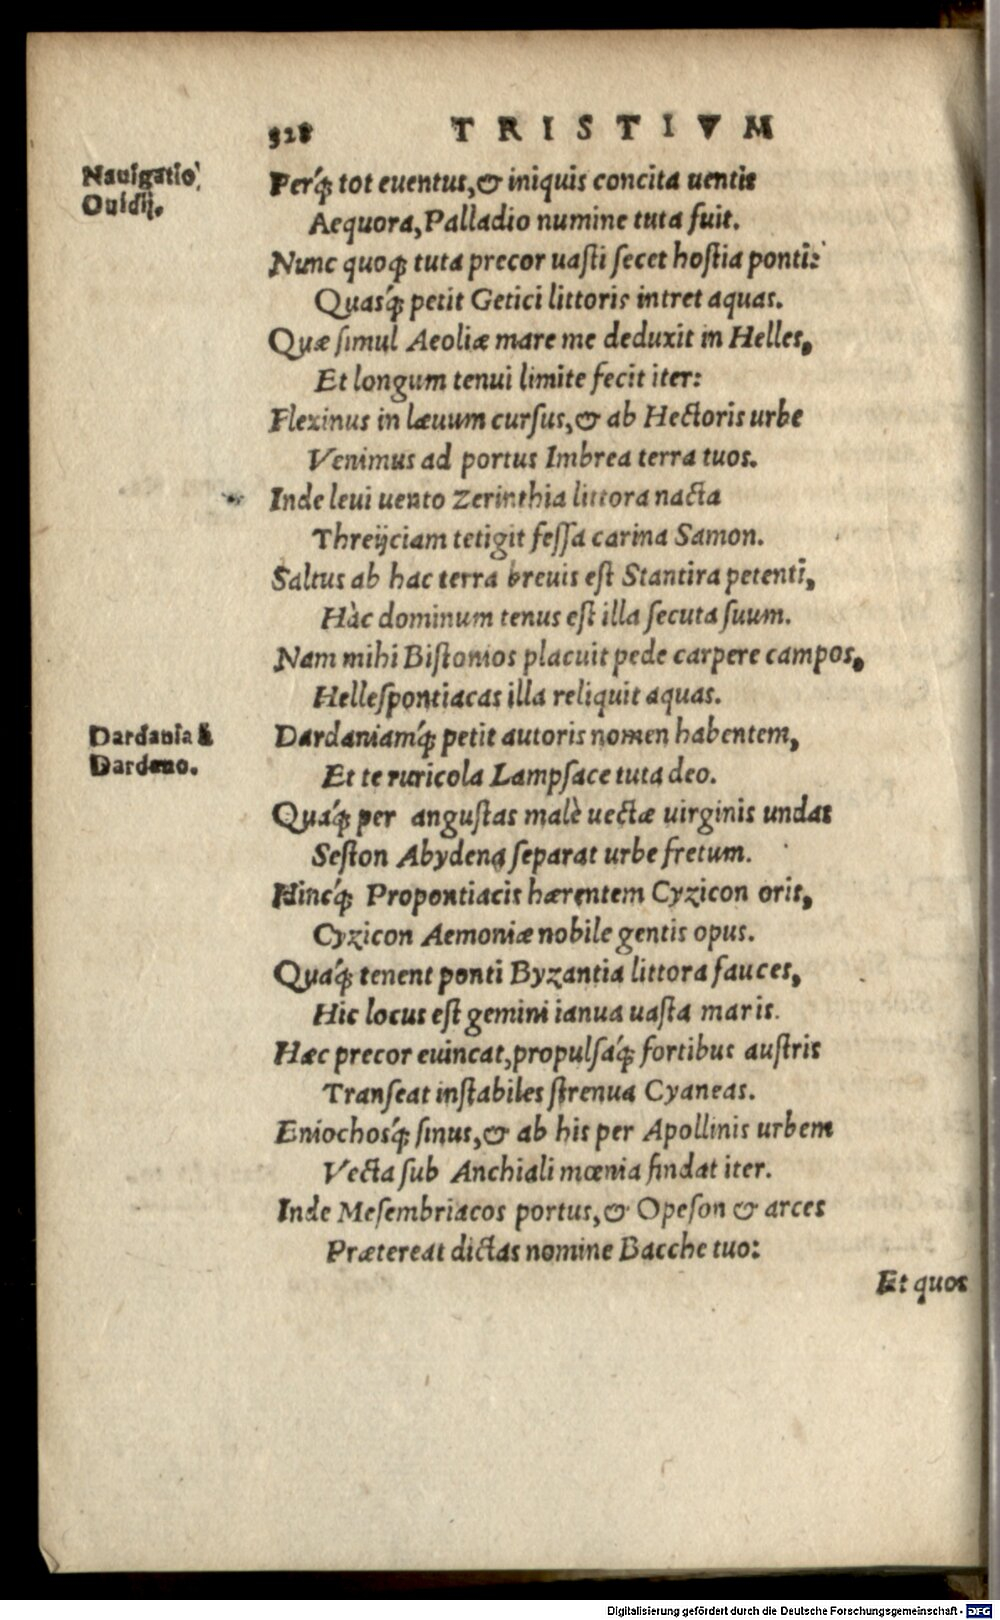 328 TRISTIVM
Nauigatio
Ouidij.
Perq́; tot euentus, & iniquis concita uentis
Aequora, Palladio numine tuta fuit.
Nunc quoq; tuta precor uasti secet hostia ponti:
Quasq́; petit Getici littoris intret aquas.
Quæ simul Aeoliæ mare me deduxit in Helles,
Et longum tenui limite fecit iter:
Flexinus in læuum cursus, & ab Hectoris urbe
Venimus ad portus Imbrea terra tuos.
Inde leui uento Zerinthia littora nacta
Threijciam tetigit fessa carina Samon.
Saltus ab hac terra breuis est Stantira petenti,
Hàc dominum tenus est illa secuta suum.
Nam mihi Bistonios placuit pede carpere campos,
Hellespontiacas illa reliquit aquas.
Dardania à
Dardano.
Dardaniamq́; petit autoris nomen habentem,
Et te ruricola Lampsace tuta deo.
Quáq; per angustas malè uectæ uirginis undas
Seston Abydena separat urbe fretum.
Hincq́; Propontiacis hærentem Cyzicon oris,
Cyzicon Aemoniæ nobile gentis opus.
Quáq; tenent ponti Byzantia littora fauces,
Hic locus est gemini ianua uasta maris.
Hæc precor euincat, propulsáq; fortibus austris
Transeat instabiles strenua Cyaneas.
Eniochosq́; sinus, & ab his per Apollinis urbem
Vecta sub Anchiali mœnia findat iter.
Inde Mesembriacos portus, & Opeson & arces
Prætereat dictas nomine Bacche tuo:
Et quos
Digitalisierung gefördert durch die Deutsche Forschungsgemeinschaft - DFG